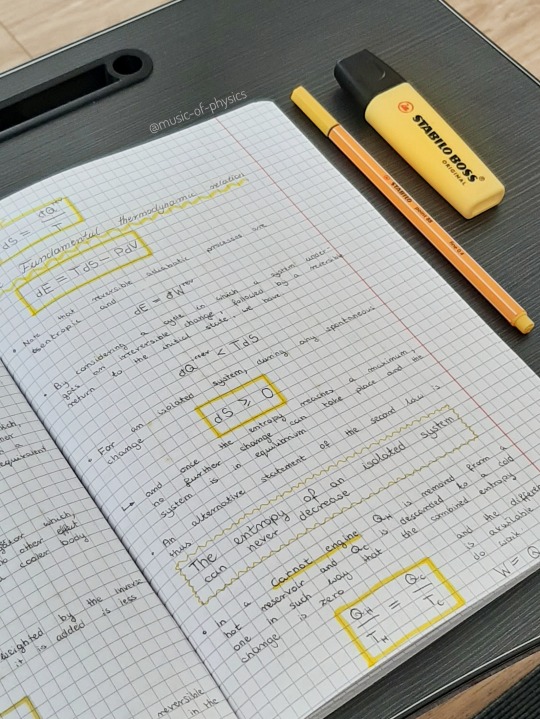 @music-of-physics
STABILO BOSS
ORIGINAL
STABILO point 88
fine 0,4
dS = đQ^rev / T
Fundamental thermodynamic relation
dE = TdS - PdV
• Note that reversible adiabatic processes are
isentropic and
dE = đW^rev
• By considering a cycle in which a system under-
goes an irreversible change, followed by a reversible
return to the initial state, we have
đQ^irrev < TdS
• For an isolated system, during any spontaneous
change
dS ≥ 0
↳ and once the entropy reaches a maximum,
no further change can take place and the
system is in equilibrium
• An alternative statement of the second law is
thus
The entropy of an isolated system
can never decrease
• In a Carnot engine Q_H is removed from a
hot reservoir and Q_C is discarded to a cold
one in such way that the combined entropy
change is zero
Q_H / T_H = Q_C / T_C
and the differen
is available
do work
W = Q
which,
a
equivalent
which,
no other effect
a cooler body
by the
it is added is less
reversible
in the